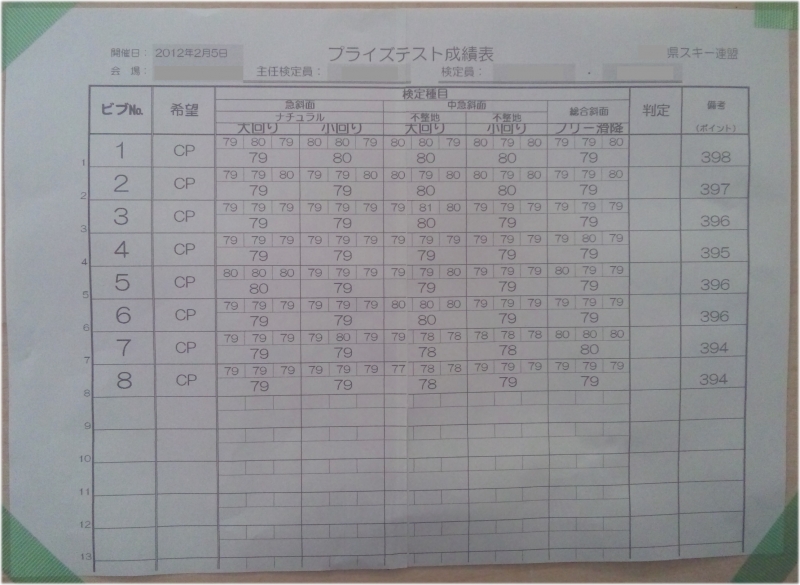 開催日： 2012年2月5日 プライズテスト成績表 県スキー連盟
会 場： 主任検定員： 検定員： ・
検定種目
ビブNo. 希望 急斜面 中急斜面 総合斜面 判定 備考
ナチュラル 不整地 不整地 (ポイント)
大回り 小回り 大回り 小回り フリー滑降
79 80 79 80 80 79 80 80 79 80 79 80 79 79 80
1 1 CP 79 80 80 80 79 398
79 79 80 79 79 80 80 79 80 80 79 80 79 79 80
2 2 CP 79 79 80 80 79 397
79 79 79 79 79 79 79 81 80 79 79 79 79 79 79
3 3 CP 79 79 80 79 79 396
79 79 79 79 79 79 79 79 79 79 79 79 79 80 79
4 4 CP 79 79 79 79 79 395
80 80 80 79 79 79 79 79 80 79 79 79 80 79 79
5 5 CP 80 79 79 79 79 396
79 79 79 79 79 79 80 80 80 79 79 79 79 79 79
6 6 CP 79 79 80 79 79 396
79 79 79 79 80 79 79 78 78 78 78 78 80 80 80
7 7 CP 79 79 78 78 80 394
79 79 79 79 79 79 77 78 78 79 79 79 79 79 79
8 8 CP 79 79 78 79 79 394
9
10
11
12
13